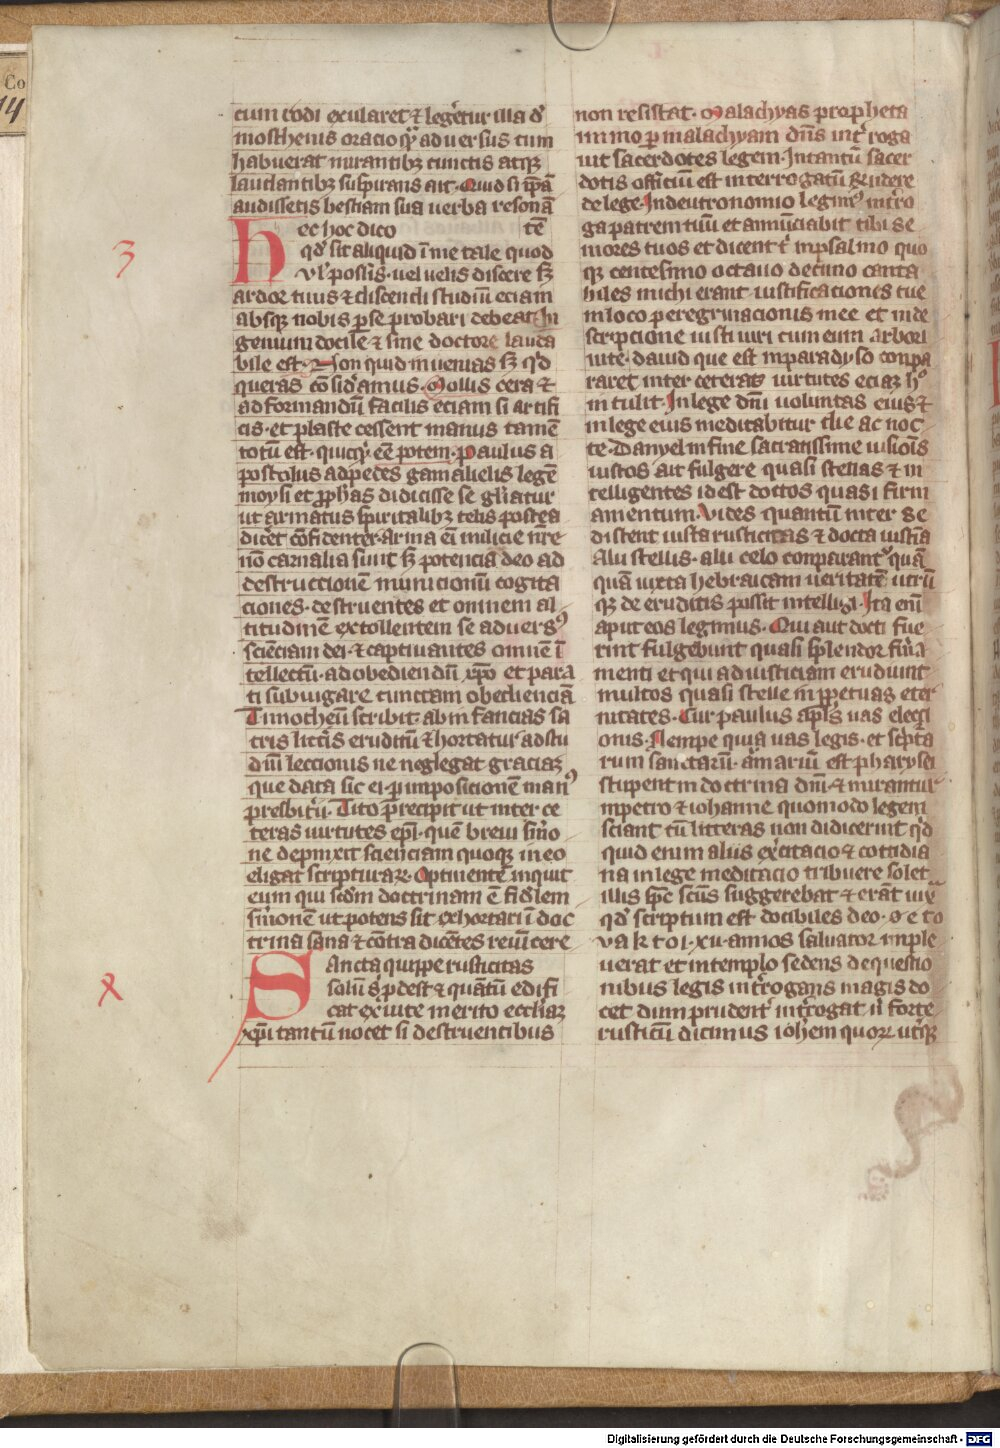 Co
14
cum rodi exularet ⁊ legeret᷑ur illa de
mosthenis oracio quā aduersus eum
habuerat mirantibꝫ cunctis atqꝫ
laudantibꝫ suspirans ait. Quid si ip̄am
audissetis bestiam sua uerba resonan
tē
hec hoc dico
3
qd̓ sit aliquid ī me tale quod
ul̓ possis. uel uelis discere sꝫ
ardor tuus ⁊ discendi studiū eciam
absqꝫ nobis ꝑ se probari debeat. In
genium docile ⁊ sine doctore lauda
bile est. Non quid inuenias sꝫ qd̓
queras cōsid̓amus. Mollis cera ⁊
ad formandū facilis eciam si artifi
cis. et plaste cessent manus tamē
totū est. quicq̓ eē potest. Paulus a
postolus ad pedes gamalielis legē
moysi et ꝓph̄as didicisse se gl̓iatur
ut armatus spiritalibꝫ telis postea
dicēt cōfidenter. arma eī milicie nr̄e
nō carnalia sunt sꝫ potencia deo ad
destructionē municionū cogita
ciones. destruentes et omnem al
titudinē extollentem se aduersꝰ
scienciam dei. ⁊ captiuantes omnē ī
tellectū. ad obediendū xp̄o et para
ti subiugare cunctam obedienciā
Timotheū scribit. ab infancias sa
cris litt̓is eruditū ⁊ hortatur ad stu
diū leccionis ne neglegat graciaꝫ
que data sic ei. ꝑ imposicionē manꝰ
presbit̓ii. Tito p̄recipit ut inter ce
teras uirtutes ep̄i. quē breui s̓mo
ne depinxit scienciam quoqꝫ in eo
eligat scripturaꝝ. Optinentē inquit
eum qui scd̓m doctrinam ē fid̓lem
s̓monē ut potens sit exhortari ī doc
trina sana ⁊ cōtra dicētes reuīcere
Sancta quippe rusticitas
solū s̓ ꝓdest ⁊ quātū edifi
ꝗ
cat ex uite merito eccl̓iaꝫ
xp̄i tantū nocet si destruentibus
non resistat. Malachyas propheta
immo ꝑ malachyam dn̄s int̓roga
uit sacerdotes legem. In tantū sacer
dotis officiū est interrogatū respondere
de lege. In deutronomio legimꝰ int̓ro
ga patrem tuū et annūciabit tibi se
niores tuos et dicent t̓. in psalmo quo
qꝫ centesimo octauo decimo canta
biles michi erant iustificationes tue
in loco peregrinacionis mee et in de
scripcione iusti uiri cum eum arbori
uite. dauid que est in paradyso conpa
raret inter ceteras uirtutes eciaꝫ hꝰ
intulit. In lege dn̄i uoluntas eius ⁊
in lege eius meditabitur die ac noc
te. Danyel in fine sacratissime uisiōis
iustos ait fulgere quasi stellas ⁊ in
telligentes id est doctos quasi firm
amentum. Vides quantū inter se
distent iusta rusticitas ⁊ docta iusticia
Alii stellis. alii celo conparant᷑ quā
quā iuxta hebraicam ueritatē utrū
qꝫ de eruditis possit intelligi. Ita enī
aput eos legimus. Qui aut docti fue
rint fulgebunt quasi splendor firma
menti et qui ad iusticiam erudiunt
multos quasi stelle in ꝑpetuas eter
nitates. Cur paulus apl̓s uas electi
onis. Nempe quia uas legis. et sc̓pta
rum sanctarū. armariū est pharysei
stupent in doctrina dn̄i. ⁊ mirantur
in petro ⁊ iohanne quomodo legem
sciant cū litteras non didicerint qd̓
quid enim aliis ex̓citacio ⁊ cottidia
na in lege meditacio tribuere solet
illis sp̄c scūs suggerebat ⁊ erāt iux̄
qd̓ scriptum est docibiles deo. θ e to
v a k t o i. xii. annos saluator imple
uerat et in templo sedens de questio
nibus legis int̓rogans magis do
cet dum prudent̓ int̓rogat n̄ forte
rusticū dicimus ioh̄em quoꝝ ut̓qꝫ
Digitalisierung gefördert durch die Deutsche Forschungsgemeinschaft - DFG